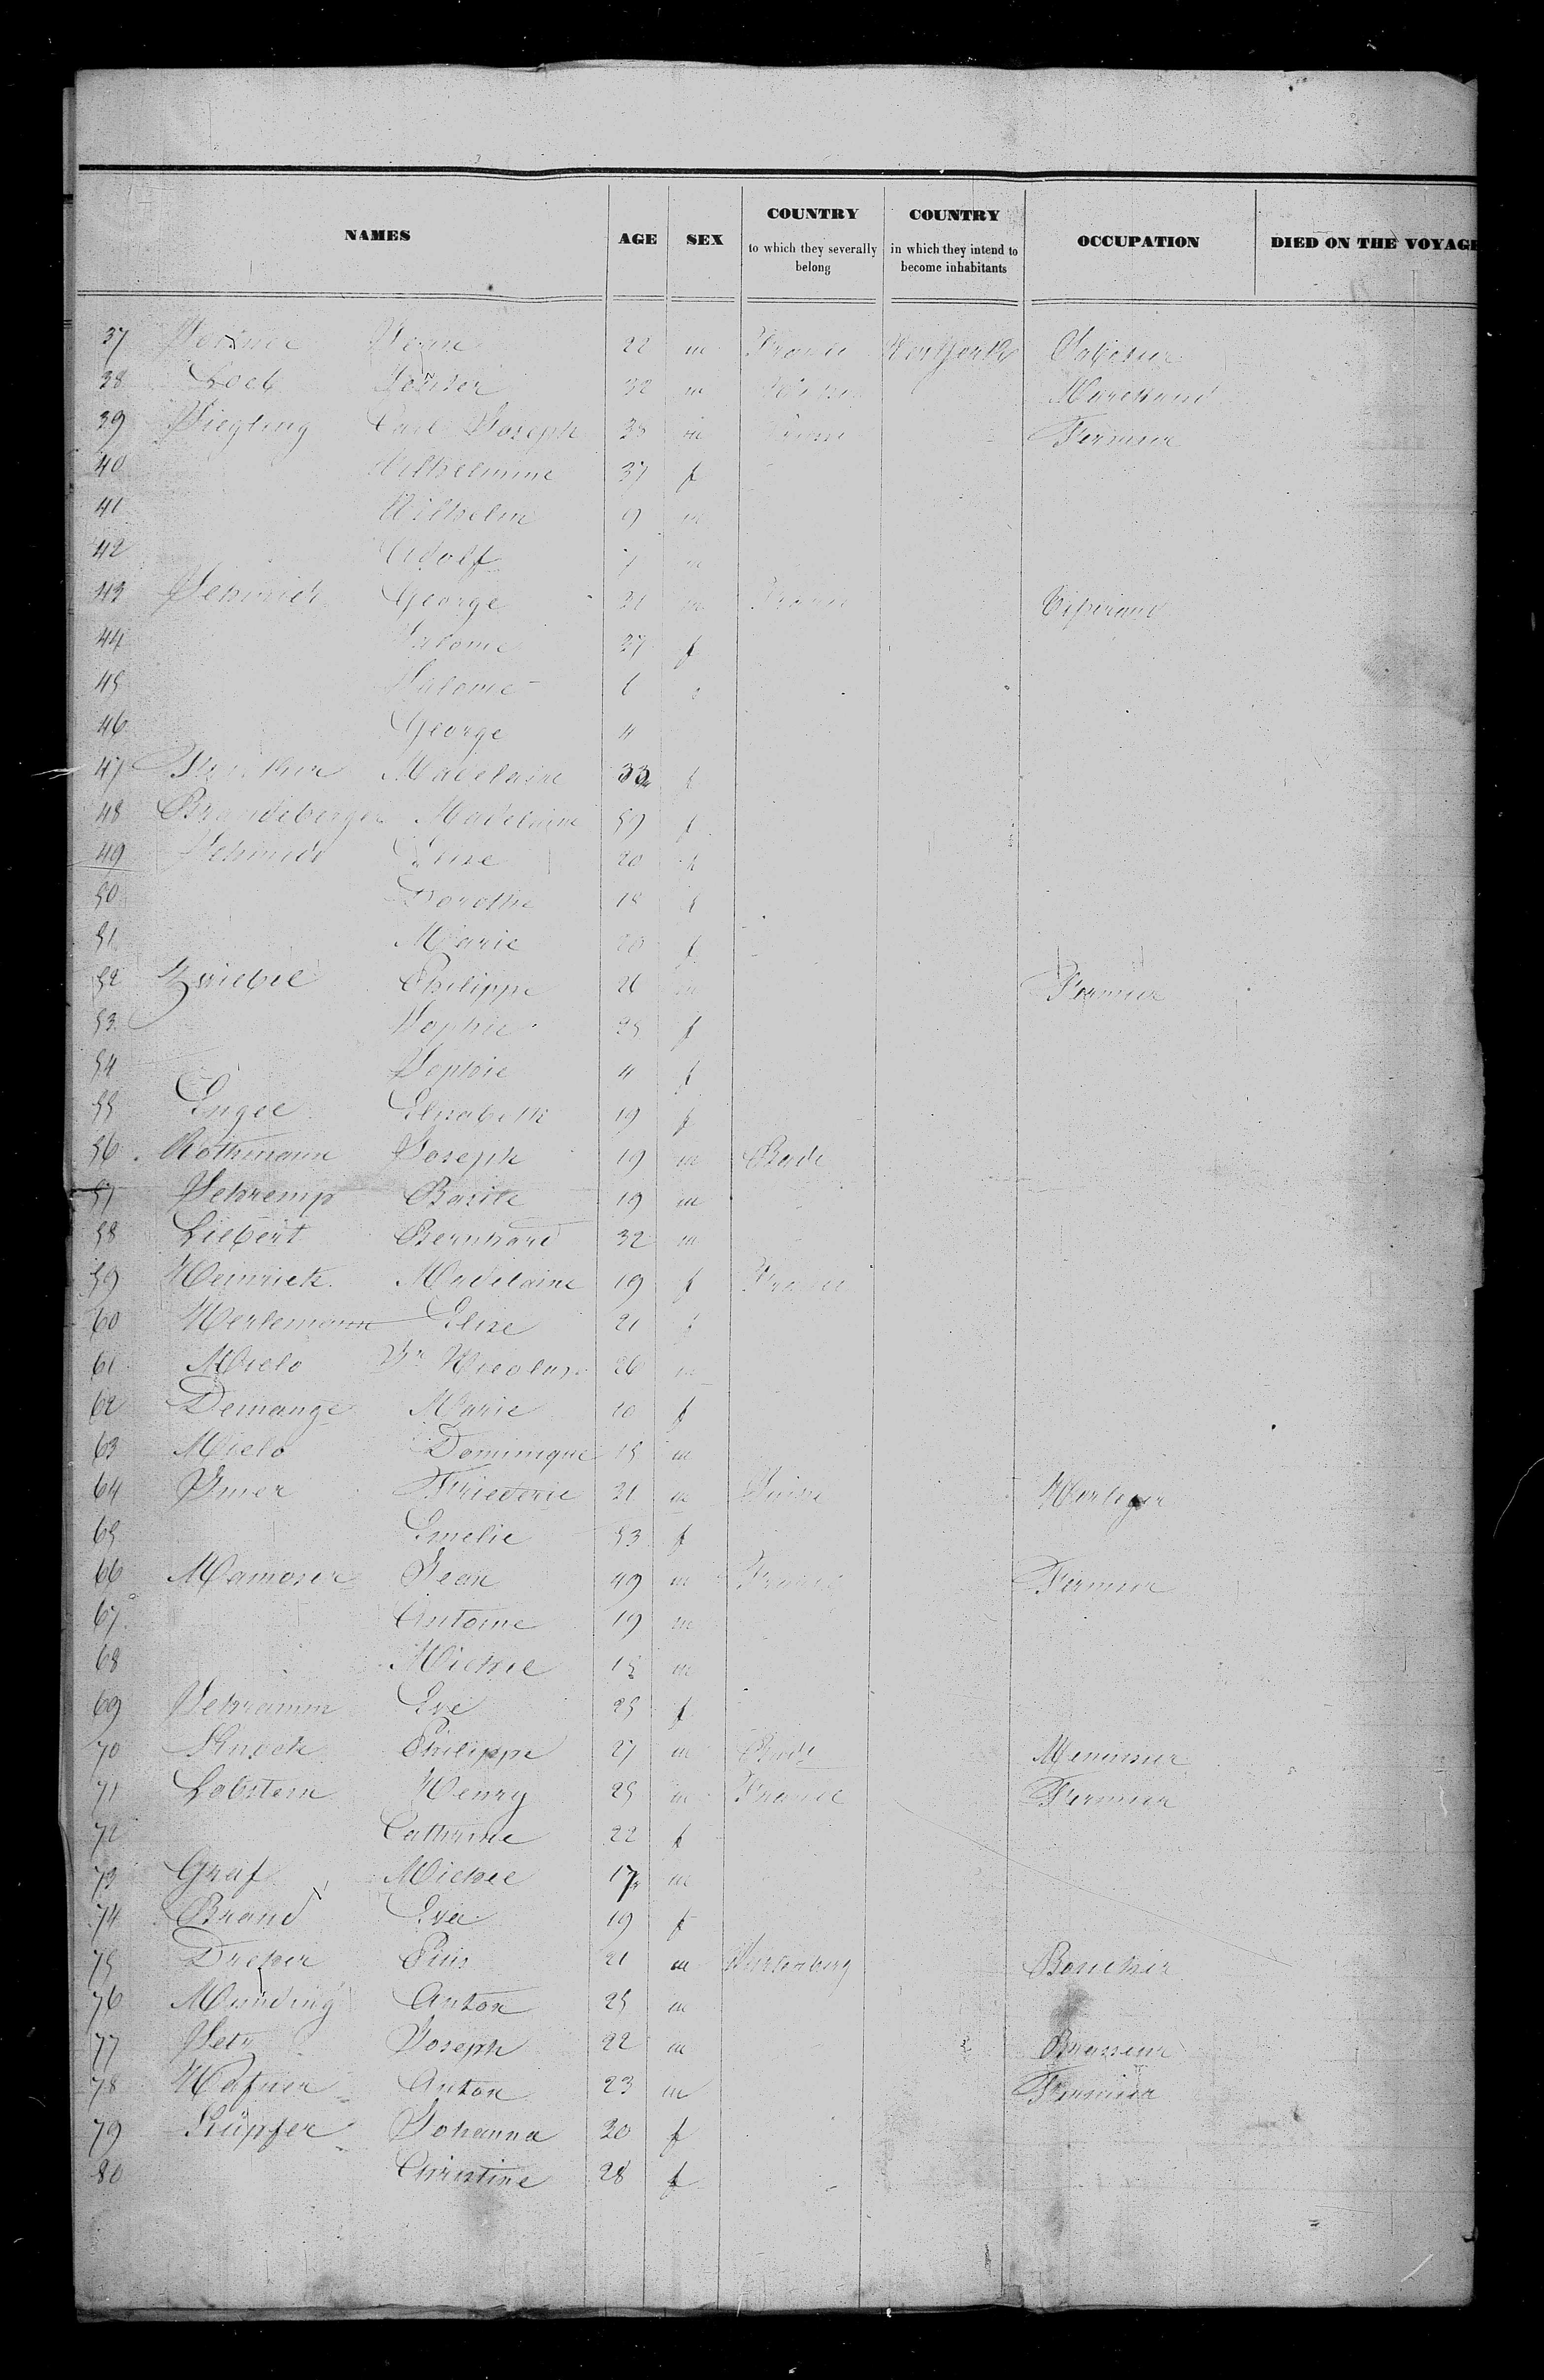 NAMES AGE SEX COUNTRY to which they severally belong COUNTRY in which they intend to become inhabitants OCCUPATION DIED ON THE VOYAGE
37 22 m France New York
38 Loeb 32 m Marchand
39 Siegling Carl Joseph 38 m Fermier
40 Wilhelmine 37 f
41 Wilhelm 9 m
42 Adolf 7 m
43 George 31 m France
44 Salome 27 f
45 Salome 6
46 George 4
47 Madelaine 33 f
48 Brandeberger Madelaine 59 f
49 Schmidt Elise 20 f
50 Dorothe 18 f
51 Marie 20 f
52 Kriebel Philippe 26 m Fermier
53 Sophie 25 f
54 Sophie 4 f
55 Engel Elisabeth 19 f
56 Rothmann Joseph 19 m Bade
57 Schremp Basile 19 m
58 Liebert Bernhard 32 m
59 Heinrich Madelaine 19 f France
60 Herlemann Elise 21 f
61 Mielo Nicolas 26 m
62 Demange Marie 20 f
63 Mielo Dominique 15 m
64 Friederic 31 m Suisse Horloger
65 Emelie 53 f
66 Mamoser Jean 49 m France Fermier
67 Antoine 19 m
68 Michel 15 m
69 Schramm Eve 25 f
70 Philippe 27 m Bade Menuisier
71 Lobstein Henry 25 m France Fermier
72 Cathrine 22 f
73 Graf Michel 17 m
74 Brand Eva 19 f
75 Dreher Pius 21 m Wurtemberg Boucher
76 Munding Anton 25 m
77 Joseph 22 m Brasseur
78 Hafner Anton 23 m Fermier
79 Küpfer Johanna 20 f
80 Christine 28 f